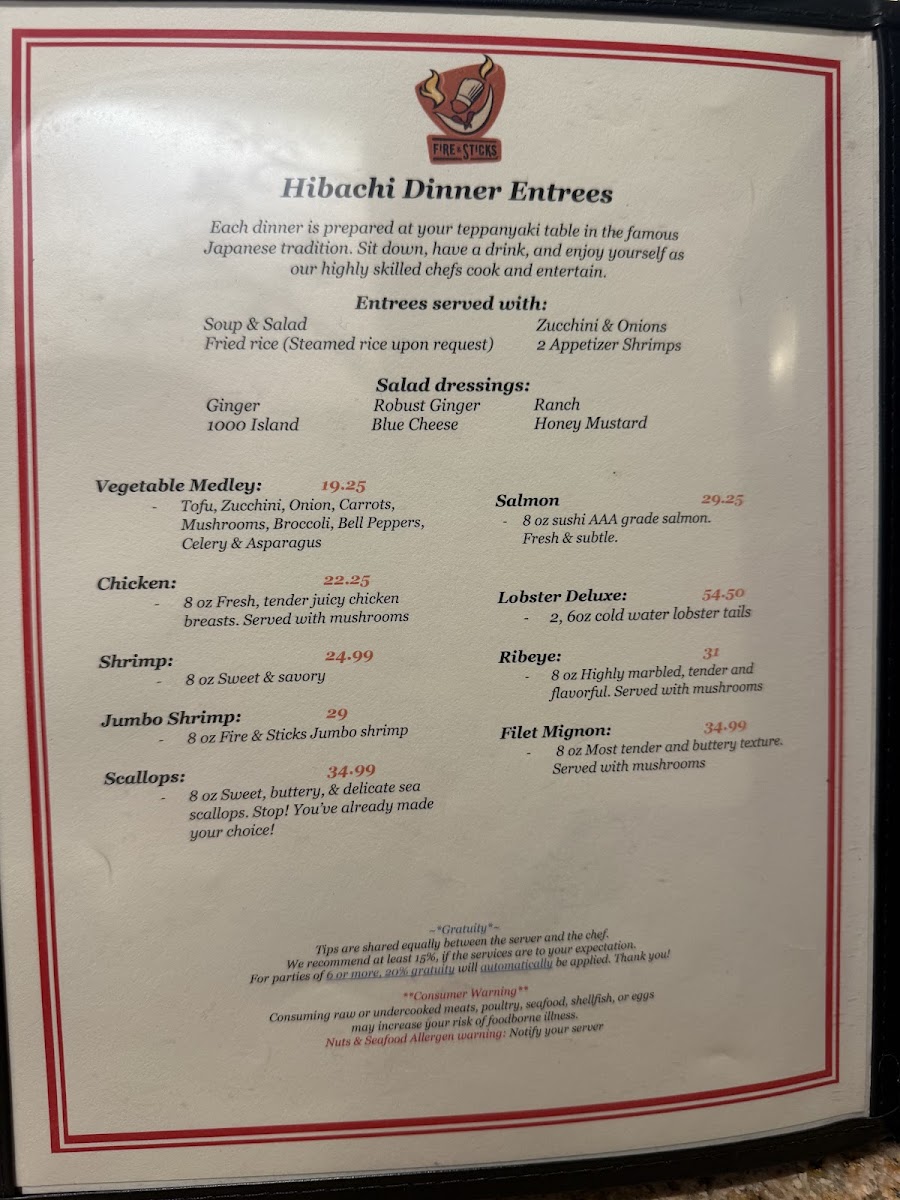 FIRE & STICKS
Hibachi Dinner Entrees
Each dinner is prepared at your teppanyaki table in the famous
Japanese tradition. Sit down, have a drink, and enjoy yourself as
our highly skilled chefs cook and entertain.
Entrees served with:
Soup & Salad
Zucchini & Onions
Fried rice (Steamed rice upon request)
2 Appetizer Shrimps
Salad dressings:
Ginger
Robust Ginger
Ranch
1000 Island
Blue Cheese
Honey Mustard
Vegetable Medley: 19.25
- Tofu, Zucchini, Onion, Carrots,
Mushrooms, Broccoli, Bell Peppers,
Celery & Asparagus
Chicken: 22.25
- 8 oz Fresh, tender juicy chicken
breasts. Served with mushrooms
Shrimp: 24.99
- 8 oz Sweet & savory
Jumbo Shrimp: 29
- 8 oz Fire & Sticks Jumbo shrimp
Scallops: 34.99
- 8 oz Sweet, buttery, & delicate sea
scallops. Stop! You've already made
your choice!
Salmon 29.25
- 8 oz sushi AAA grade salmon.
Fresh & subtle.
Lobster Deluxe: 54.50
- 2, 6oz cold water lobster tails
Ribeye: 31
- 8 oz Highly marbled, tender and
flavorful. Served with mushrooms
Filet Mignon: 34.99
- 8 oz Most tender and buttery texture.
Served with mushrooms
~*Gratuity*~
Tips are shared equally between the server and the chef.
We recommend at least 15%, if the services are to your expectation.
For parties of 6 or more, 20% gratuity will automatically be applied. Thank you!
**Consumer Warning**
Consuming raw or undercooked meats, poultry, seafood, shellfish, or eggs
may increase your risk of foodborne illness.
Nuts & Seafood Allergen warning: Notify your server